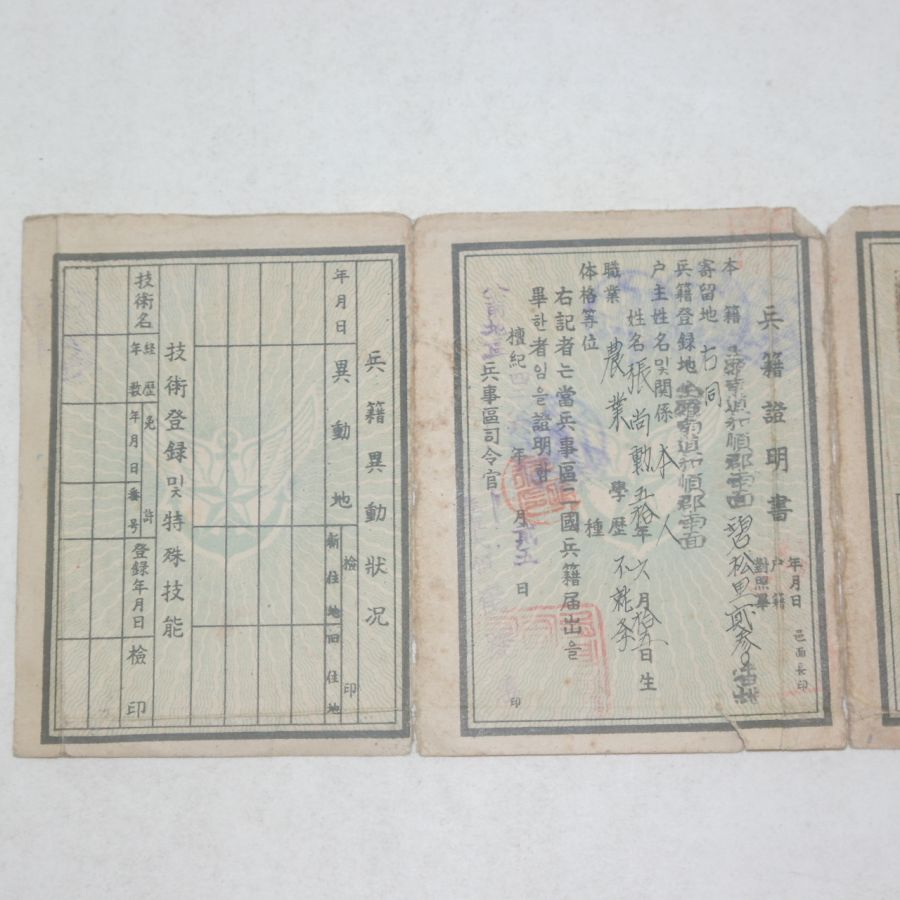 兵籍證明書
年月日
戶籍
對照畢
邑面長印
本籍 全羅南道和順郡南面 碧松里
寄留地 右同
兵籍登録地 全羅南道和順郡南面
戶主姓名및關係 本人
姓名 張尚勲 五拾年六月拾五日生
職業 農業 學歷 不就學
体格等位 種
右記者는當兵事區ニ國兵籍届出을
畢한者임을證明함
檀紀四 年 月 日
兵事區司令官
印
兵籍異動狀况
年月日 異動地 檢印
新住地 旧住地
技術登録및特殊技能
技術名 経歴年數 免許 年月日 番号 登録年月日 檢印